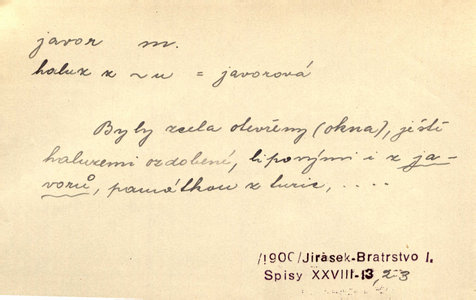 javor m.
haluz z ~u = javorová
Byly zcela otevřeny (okna), ještě
haluzemi ozdobené, lipovými i z ja-
vorů, památkou z turic, ....
/1900/Jirásek-Bratrstvo I.
Spisy XXVIII-13, 23